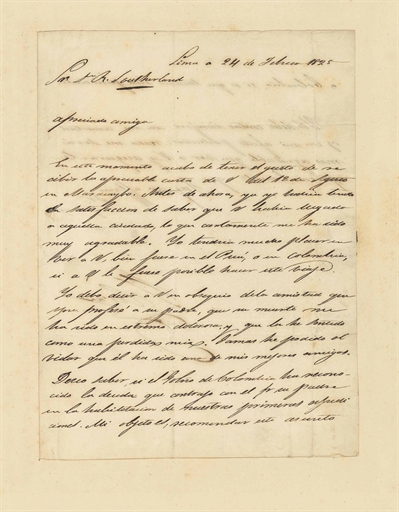 Lima a 24 de Febrero 1825
Sor Dn R. Southerland
Apreciado amigo
En este momento acabo de tener el gusto de re
cibir la apreciable carta de V del 12 de Agosto
en Maracaybo. Antes de ahora, ya yo habia tenido
la satisfaccion de saber que V habia llegado
a aquella ciudad, lo que ciertamente me ha sido
muy agradable. Yo tendria mucho placer en
ver a V. bien fuese en el Perú, o en Colombia,
si a V le fuese posible hacer este viaje.
Yo debo decir a V en obsequio de la amistad que
yo profesé a su padre, que su muerte me
ha sido en estremo dolorosa, y que la he sentido
como una perdida mia. Jamas he podido ol
vidar que él ha sido uno de mis mejores amigos.
Deseo saber si el Gobno de Colombia ha recono-
cido la deuda que contrajo con el Sr su padre
en la habilitacion de nuestras primeras espedi
ciones. Mi objeto es, recomendar este asunto